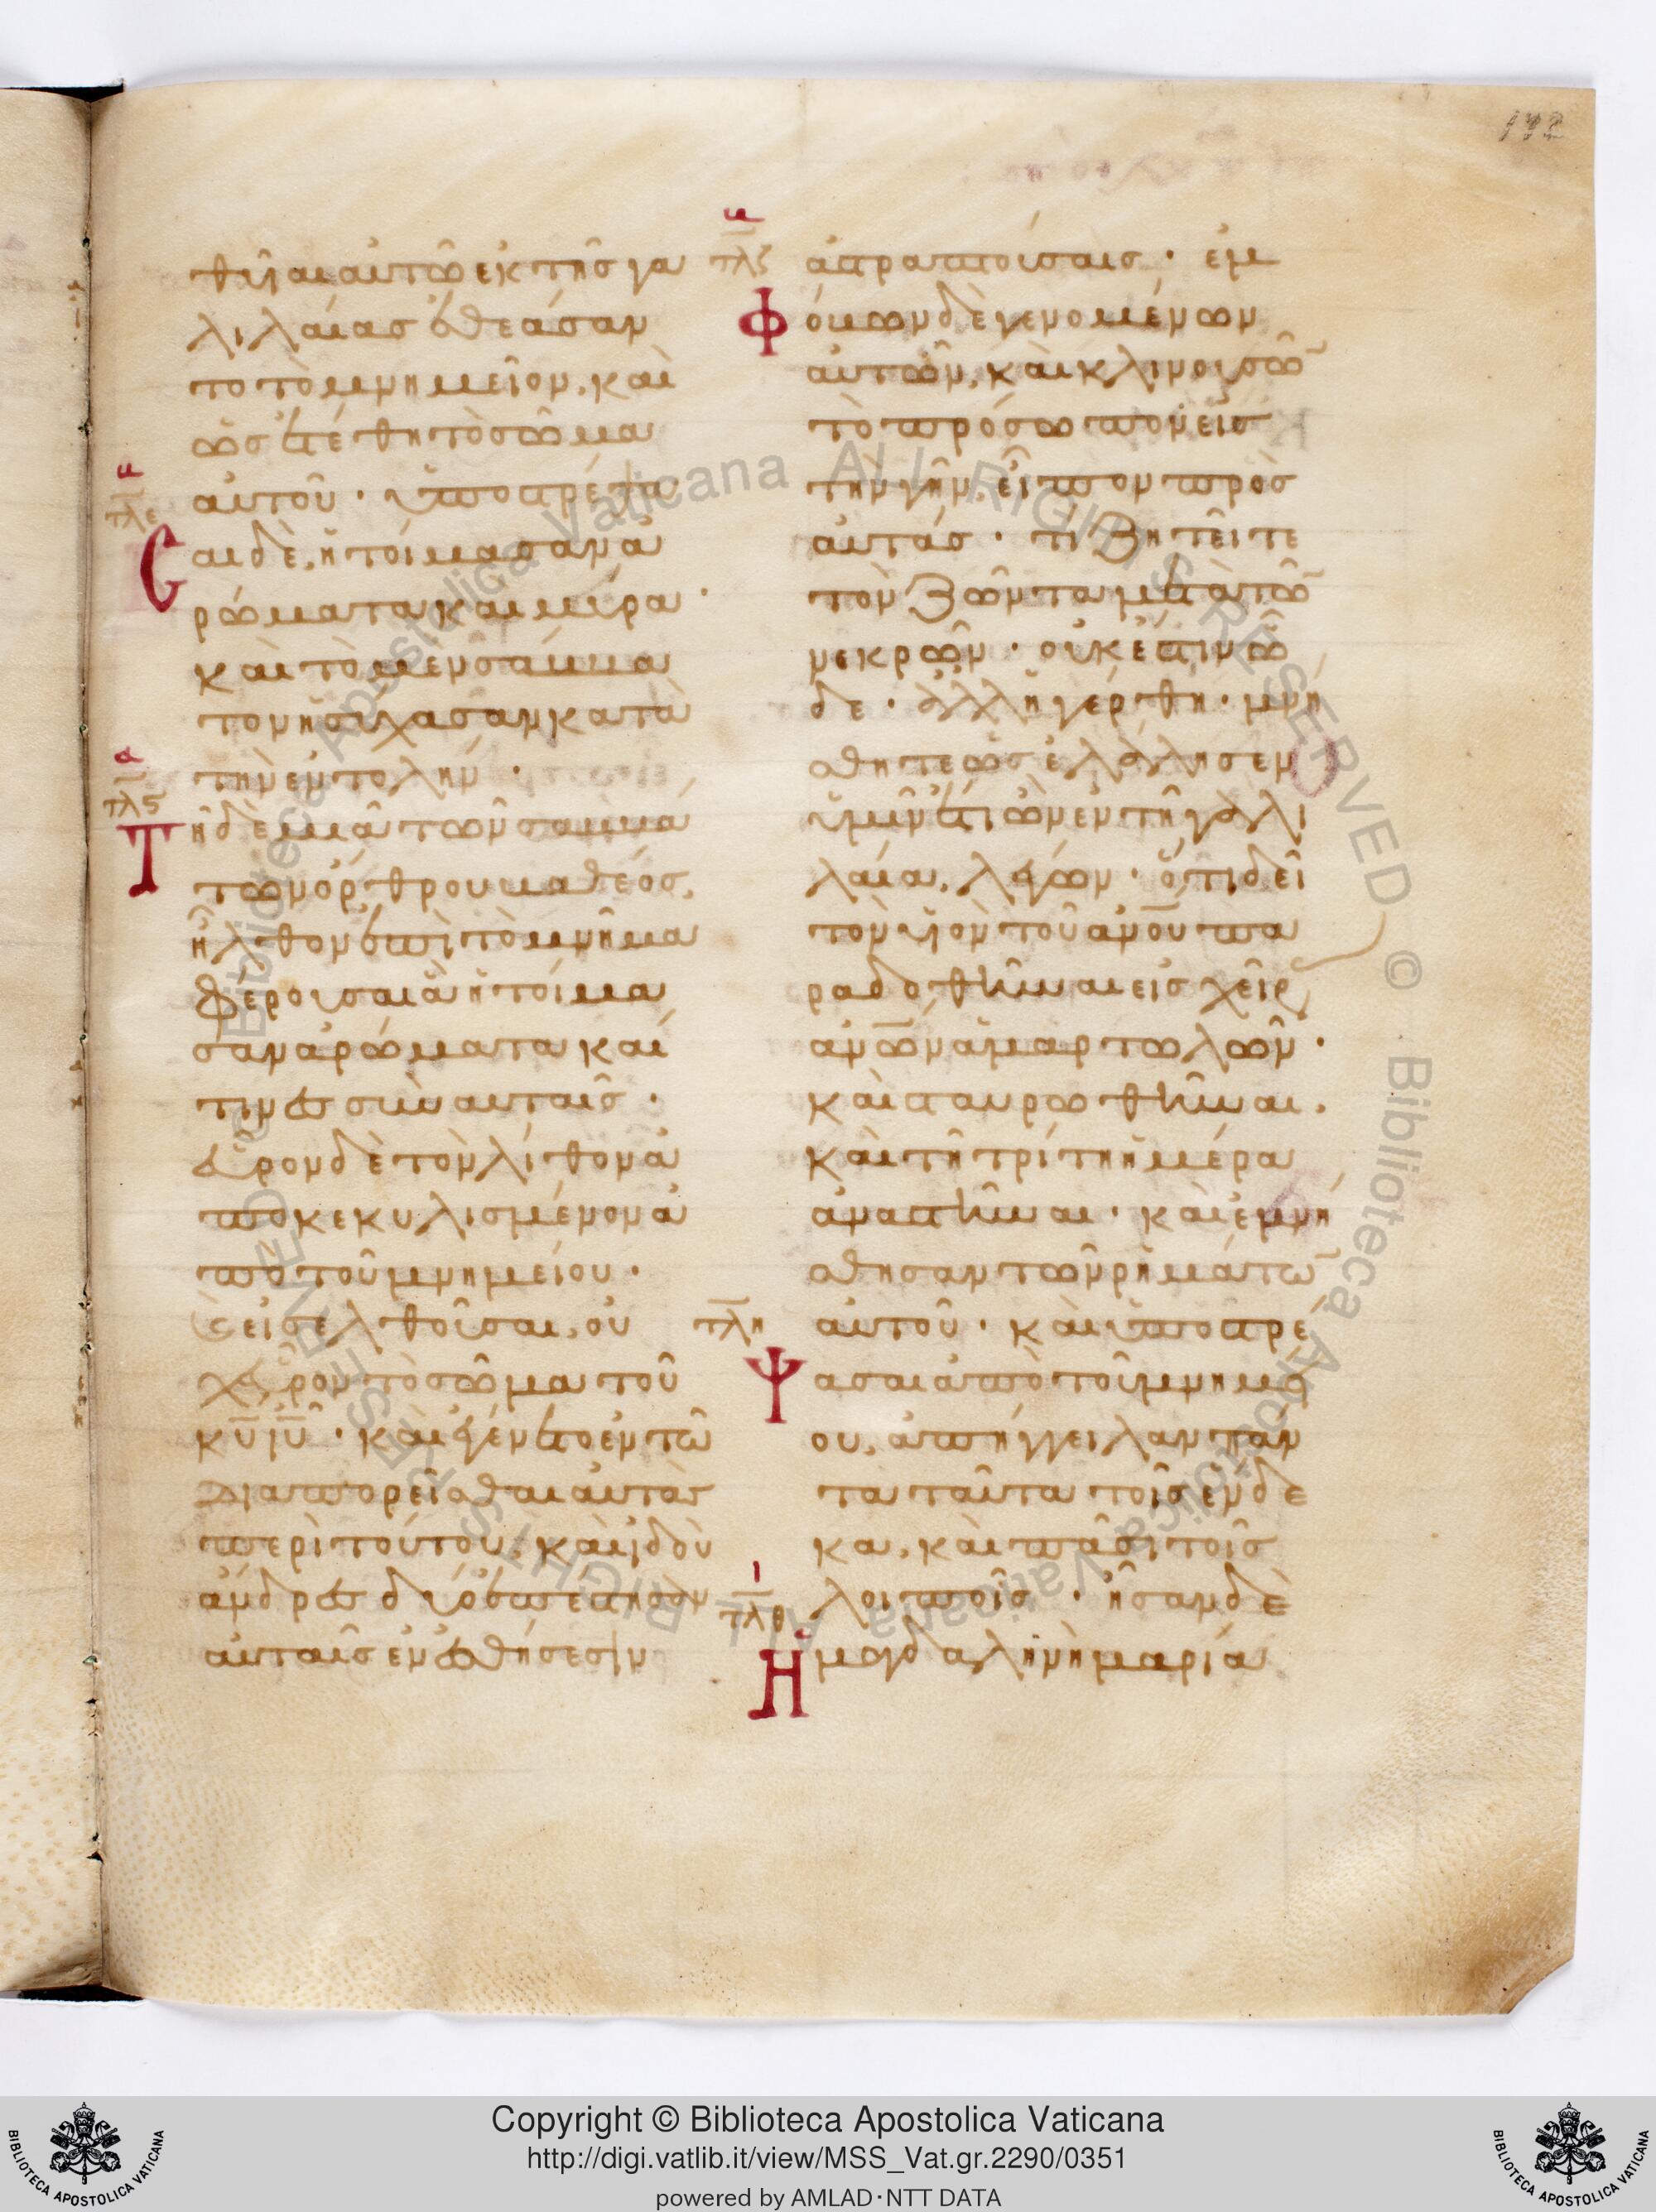 172
θῦιαι αὐτῶ ἐκ τῆς γα
λιλαίας ἐθεάσαν
το τὸ μνημεῖον, καὶ
ὡς ἐτέθη τὸ σῶμα
αὐτοῦ · ὑποστρέψα
τλε
σαι δὲ, ἡτοίμασαν ἀ
ρώματα καὶ μύρα ·
καὶ τὸ μὲν σάββα
τον ἡσύχασαν κατὰ
τὴν ἐντολήν ·
τλϛ
Τῆ δὲ μιᾶ τῶν σαββά
των ὄρθρου βαθέος,
ἦλθον ἐπὶ τὸ μνῆμα
φέρουσαι ἃ ἡτοίμα
σαν ἀρώματα καί
τινες σὺν αὐταῖς ·
εὗρον δὲ τὸν λίθον ἀ
ποκεκυλισμένον ἀ
πὸ τοῦ μνημείου ·
εἰσελθοῦσαι, οὐ
χ εὗρον τὸ σῶμα τοῦ
κ̅υ̅ ι̅υ̅ · καὶ ἐγένετο ἐν τῶ
διαπορεῖσθαι αὐτὰς
περὶ τούτου, καὶ ἰδοὺ
ἄνδρες δύο ἐπέστησαν
αὐταῖς ἐν ἐσθήσεσιν
τλζ
ἀστραπτούσαις · ἐμ
Φόβων δὲ γενομένων
αὐτῶν, καὶ κλινουσῶ̅
τὸ πρόσωπον εἰς
τὴν γῆν, εἶπον πρὸς
αὐτάς · τί ζητεῖτε
τὸν ζῶντα μετὰ τῶ̅
νεκρῶν · οὐκ ἔστιν ὧ
δε · ἀλλ ἠγέρθη · μνή
σθητε ὡς ἐλάλησεν
ὑμῖν ἔτι ὢν ἐν τῆ γαλι
λαία, λέγων · ὅτι δεῖ
τὸν υἱὸν τοῦ α̅ν̅ο̅υ̅ πα
ραδοθῆναι εἰς χεῖρ
α̅ν̅ω̅ν̅ ἁμαρτωλῶν ·
καὶ σταυρωθῆναι,
καὶ τῆ τρίτη ἡμέρα
ἀναστῆναι · καὶ ἐμνή
σθησαν τῶν ῥημάτω̅
τλη
αὐτοῦ · καὶ ὑποστρέ
Ψασαι ἀπὸ τοῦ μνημεί
ου, ἀπήγγειλαν πάν
τα ταῦτα τοῖς ἕνδε
κα, καὶ πᾶσι τοῖς
τλθ
λοιποῖς · ἦσαν δὲ
Ἡ μαγδαληνὴ μαρία
Copyright © Biblioteca Apostolica Vaticana
http://digi.vatlib.it/view/MSS_Vat.gr.2290/0351
powered by AMLAD·NTT DATA